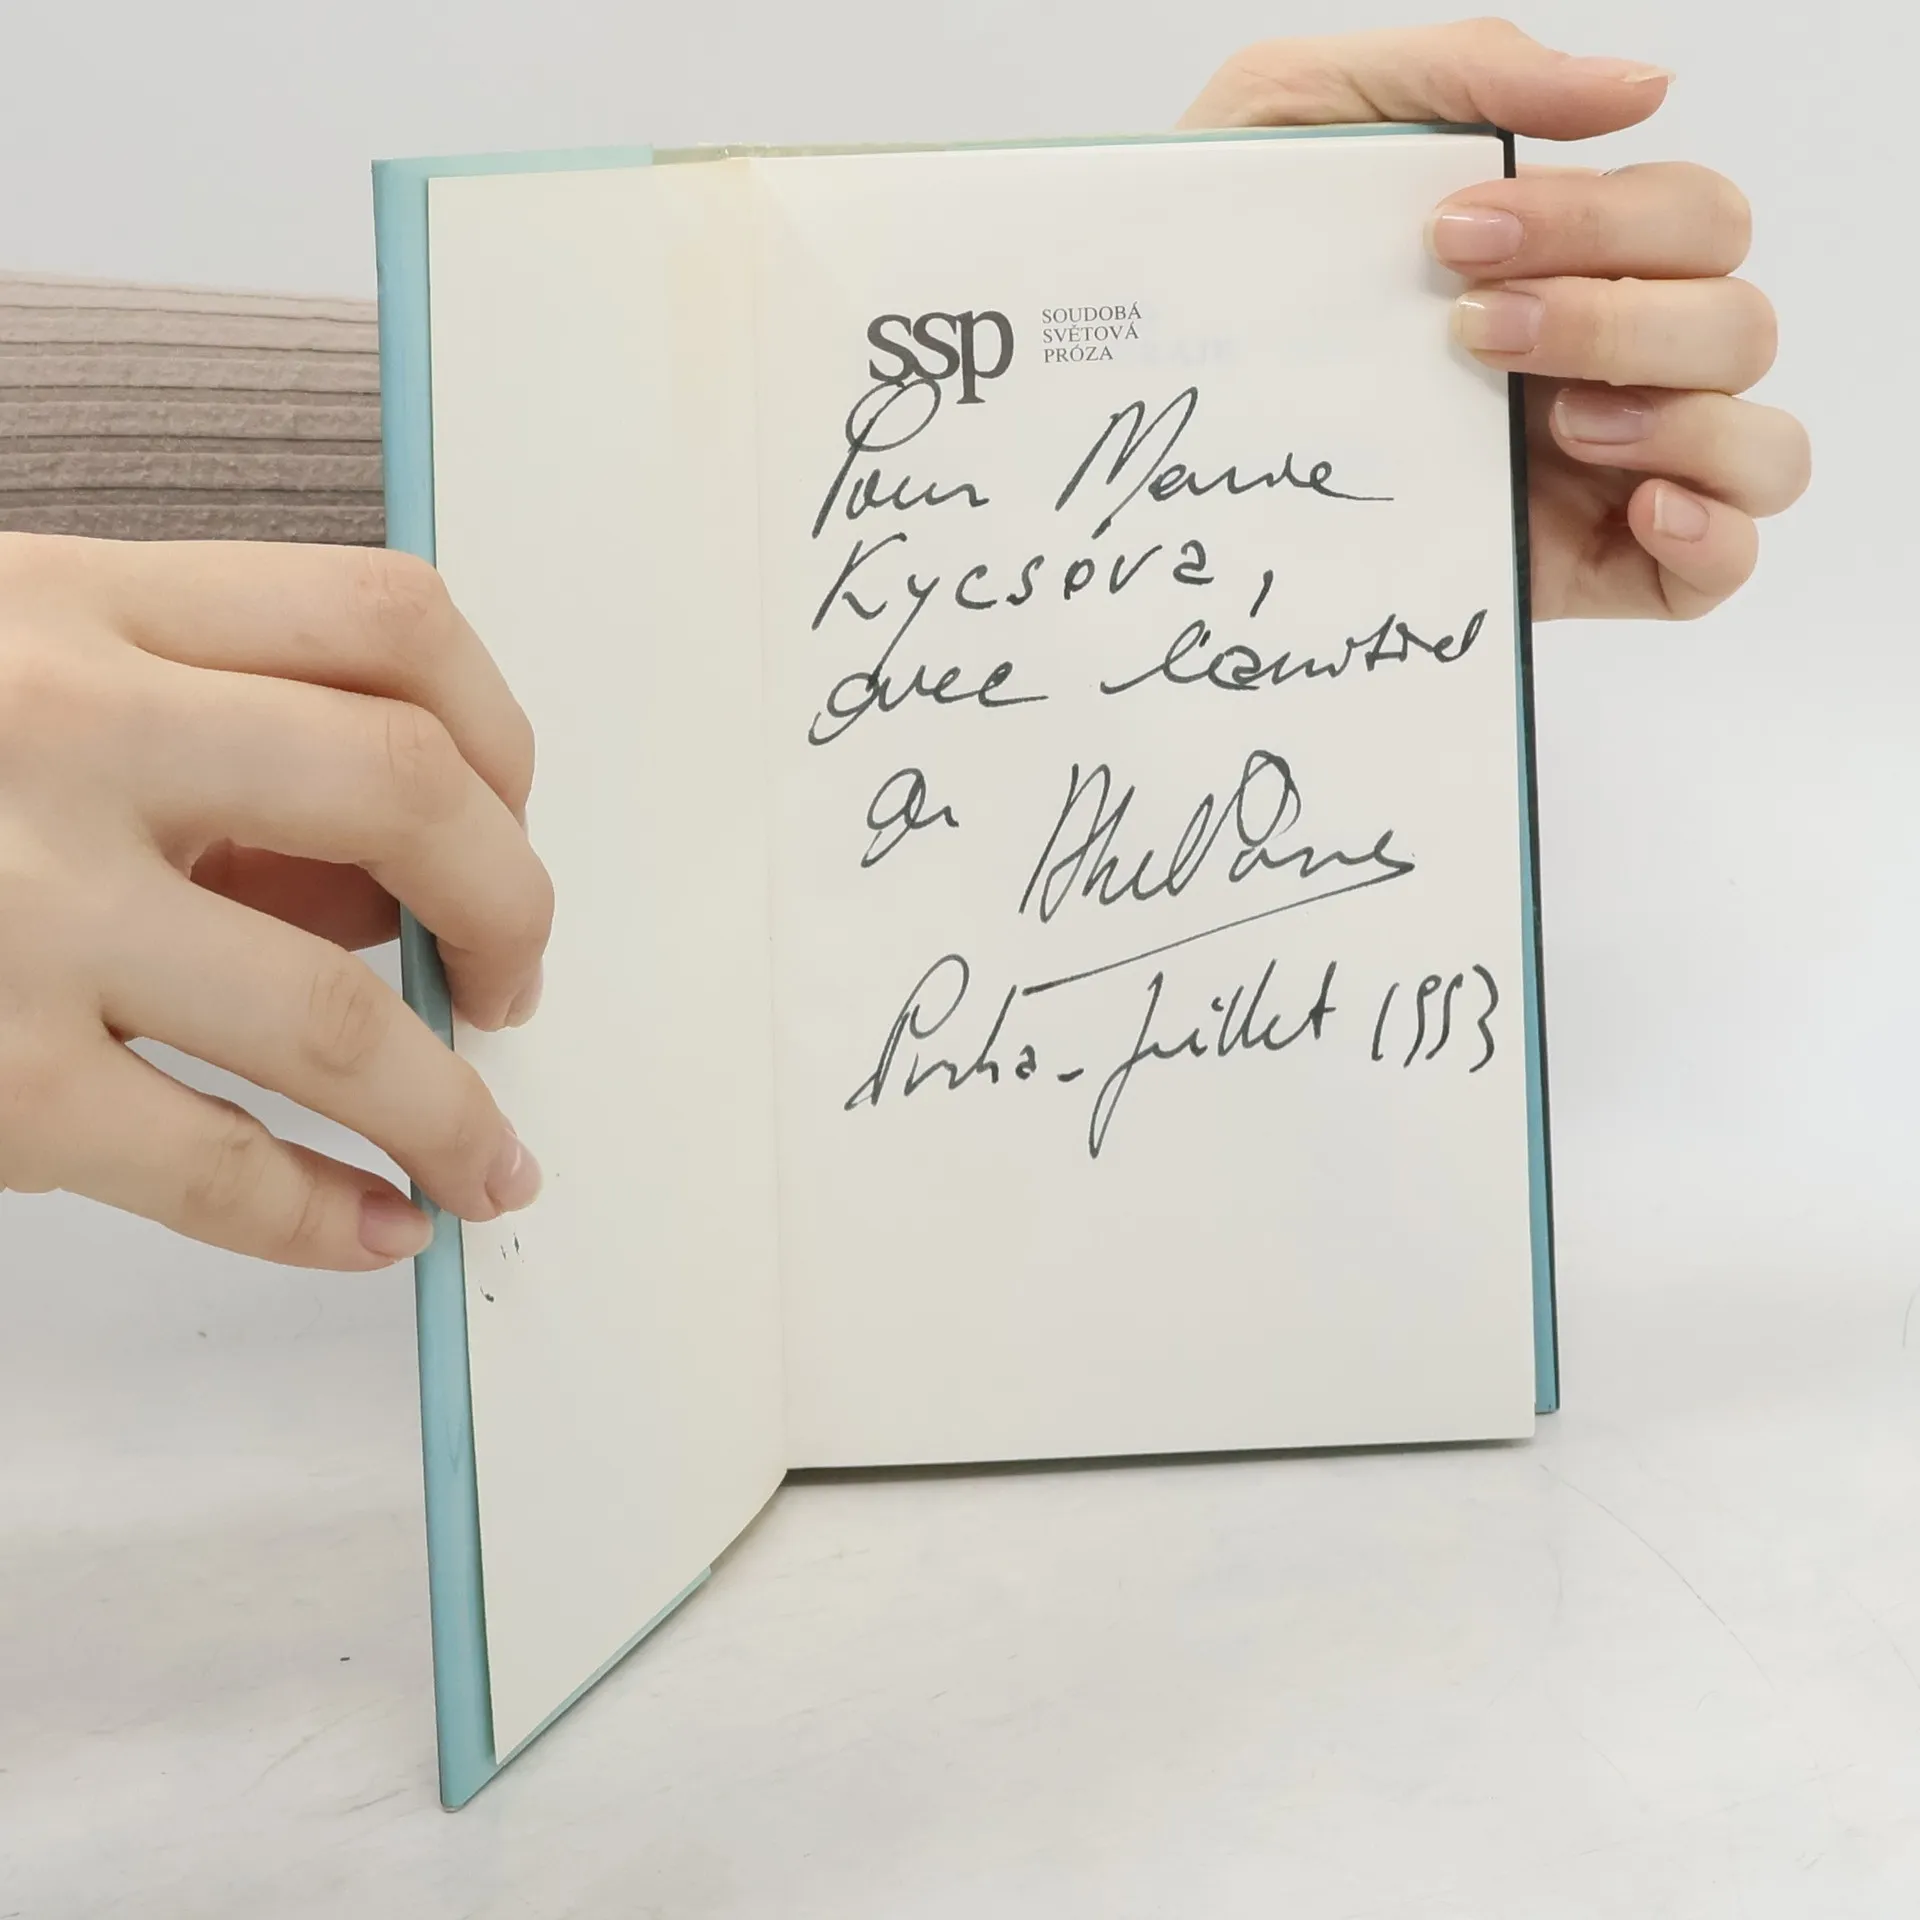 ssp
SOUDOBÁ
SVĚTOVÁ
PRÓZA
Pour Marie
Kycsóva,
avec l'amitié
de
Praha - Juillet 1993